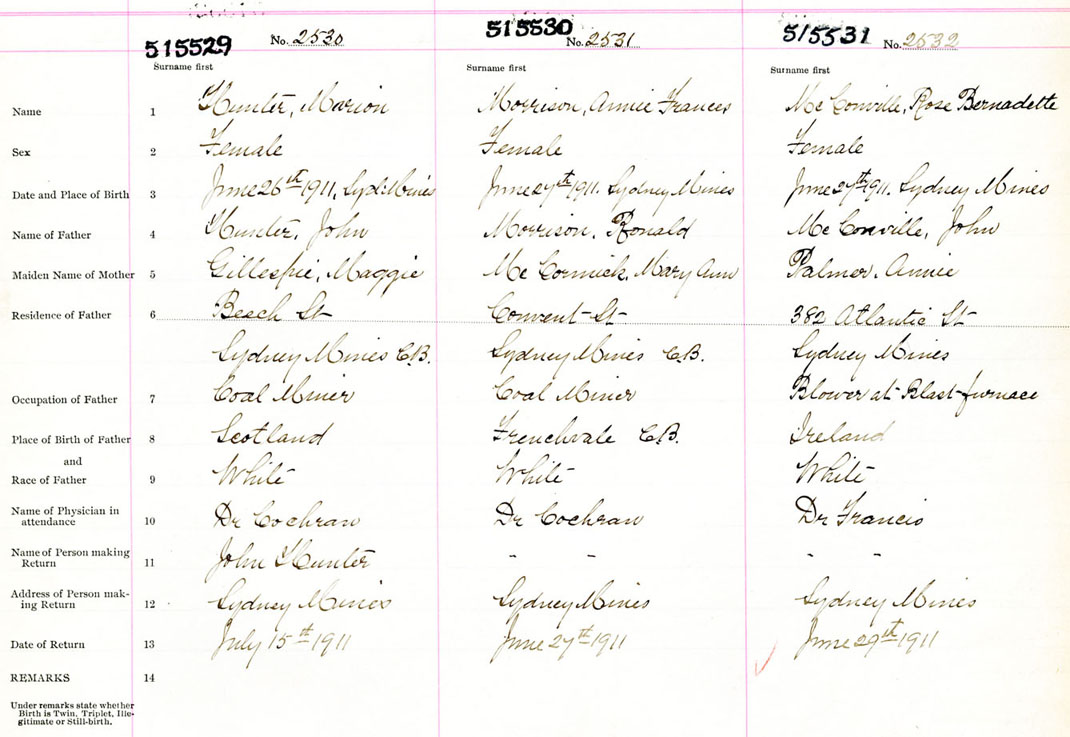 515529 No. 2530 515530 No. 2531 515531 No. 2532
Surname first Surname first Surname first
Name 1 Hunter, Marion Morrison, Annie Frances Mc Conville, Rose Bernadette
Sex 2 Female Female Female
Date and Place of Birth 3 June 26th 1911, Syd: Mines June 27th 1911. Sydney Mines June 27th 1911. Sydney Mines
Name of Father 4 Hunter, John Morrison, Ronald Mc Conville, John
Maiden Name of Mother 5 Gillespie, Maggie Mc Cormick, Mary Ann Palmer, Annie
Residence of Father 6 Beech St Convent St 382 Atlantic St
Sydney Mines C.B. Sydney Mines C.B. Sydney Mines
Occupation of Father 7 Coal Miner Coal Miner Blower at Blast-furnace
Place of Birth of Father 8 Scotland Frenchvale C.B. Ireland
and
Race of Father 9 White White White
Name of Physician in
attendance 10 Dr Cochran Dr Cochran Dr Francis
Name of Person making
Return 11 John Hunter - - - -
Address of Person mak-
ing Return 12 Sydney Mines Sydney Mines Sydney Mines
Date of Return 13 July 15th 1911 June 27th 1911 June 29th 1911
REMARKS 14
Under remarks state whether
Birth is Twin, Triplet, Ille-
gitimate or Still-birth.